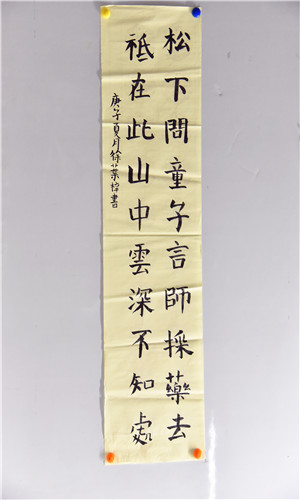 松下問童子言師採藥去
祗在此山中雲深不知處
庚子夏月徐葉